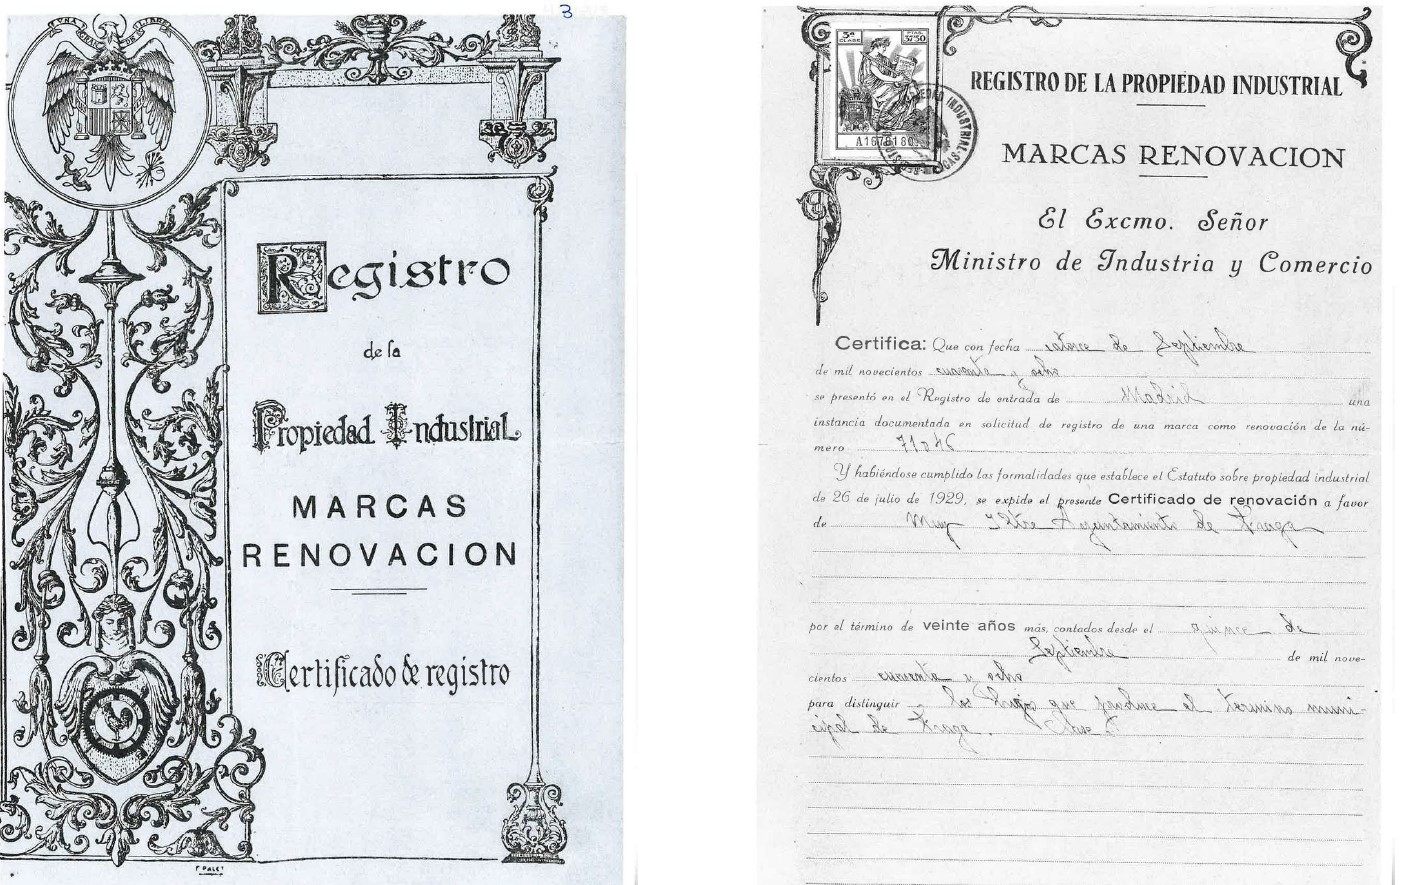 3
UNA GRANDE LIBRE
Registro
de la
Propiedad Industrial
MARCAS
RENOVACION
Certificado de registro
5ª CLASE
PTAS. 37'50
REGISTRO DE LA PROPIEDAD INDUSTRIAL
MARCAS RENOVACION
El Excmo. Señor
Ministro de Industria y Comercio
Certifica: Que con fecha catorce de Septiembre
de mil novecientos cuarenta y ocho
se presentó en el Registro de entrada de Madrid una
instancia documentada en solicitud de registro de una marca como renovación de la nú-
mero
Y habiéndose cumplido las formalidades que establece el Estatuto sobre propiedad industrial
de 26 de julio de 1929, se expide el presente Certificado de renovación a favor
de Muy Iltre Ayuntamiento de Fraga
por el término de veinte años más, contados desde el quince de
Septiembre de mil nove-
cientos cuarenta y ocho
para distinguir los higos que produce el termino muni-
cipal de Fraga. Clase